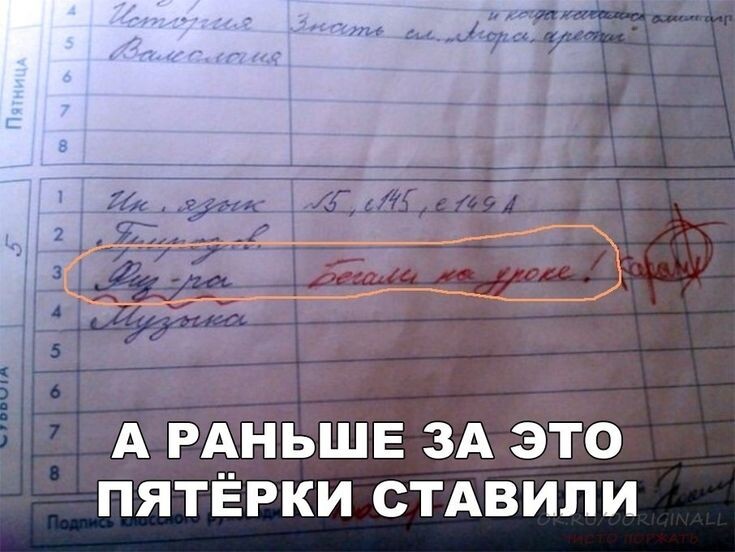 4 История Знать сл. „Мора, ареопаг"
5 Валеология
6
Пятница
7
8
1 Ин. язык №5, с145, с149А
5
2 Природов.
3 Физ-ра Бегали на уроке!
4 Музыка
5
6
Суббота
7
8
А РАНЬШЕ ЗА ЭТО
ПЯТЁРКИ СТАВИЛИ
Подпись классного
OK.RU/OORIGINALL
ЧИСТО ПОРЖАТЬ